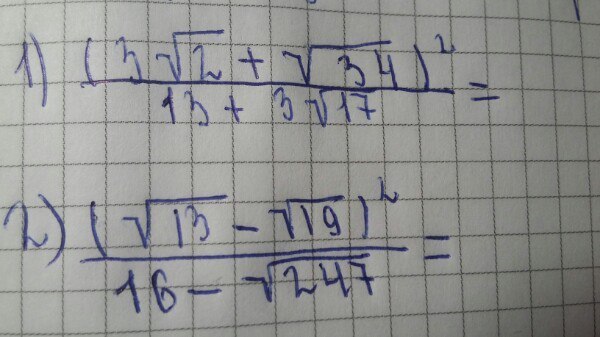 1) (3√2 + √34)²
13 + 3√17 =
2) (√13 - √19)²
16 - √247 =